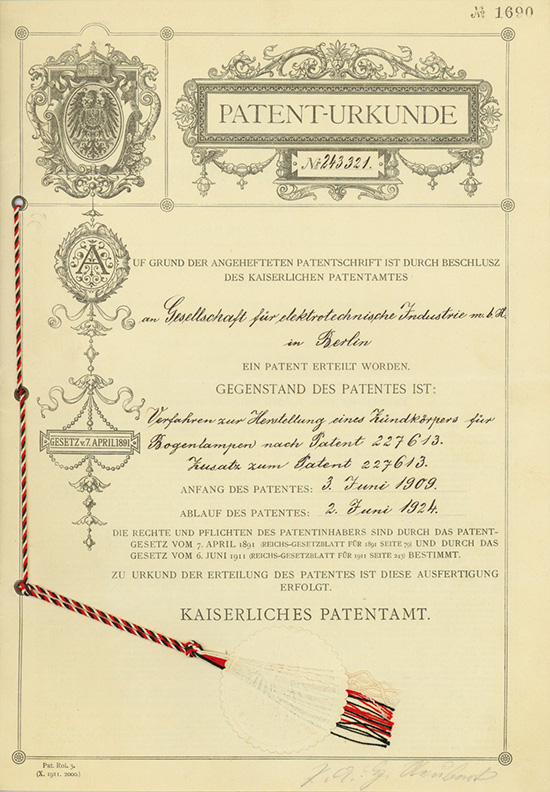 № 1690
PATENT-URKUNDE
№ 243321.
AUF GRUND DER ANGEHEFTETEN PATENTSCHRIFT IST DURCH BESCHLUSZ
DES KAISERLICHEN PATENTAMTES
an Gesellschaft für elektrotechnische Industrie m. b. H.
in Berlin
EIN PATENT ERTEILT WORDEN.
GEGENSTAND DES PATENTES IST:
Verfahren zur Herstellung eines Zündkörpers für
Bogenlampen nach Patent 227613.
Zusatz zum Patent 227613.
GESETZ v. 7. APRIL 1891
ANFANG DES PATENTES: 3. Juni 1909.
ABLAUF DES PATENTES: 2. Juni 1924.
DIE RECHTE UND PFLICHTEN DES PATENTINHABERS SIND DURCH DAS PATENT-
GESETZ VOM 7. APRIL 1891 (REICHS-GESETZBLATT FÜR 1891 SEITE 79) UND DURCH DAS
GESETZ VOM 6. JUNI 1911 (REICHS-GESETZBLATT FÜR 1911 SEITE 243) BESTIMMT.
ZU URKUND DER ERTEILUNG DES PATENTES IST DIESE AUSFERTIGUNG
ERFOLGT.
KAISERLICHES PATENTAMT.
Pat. Rol. 3.
(X. 1911. 2000.)